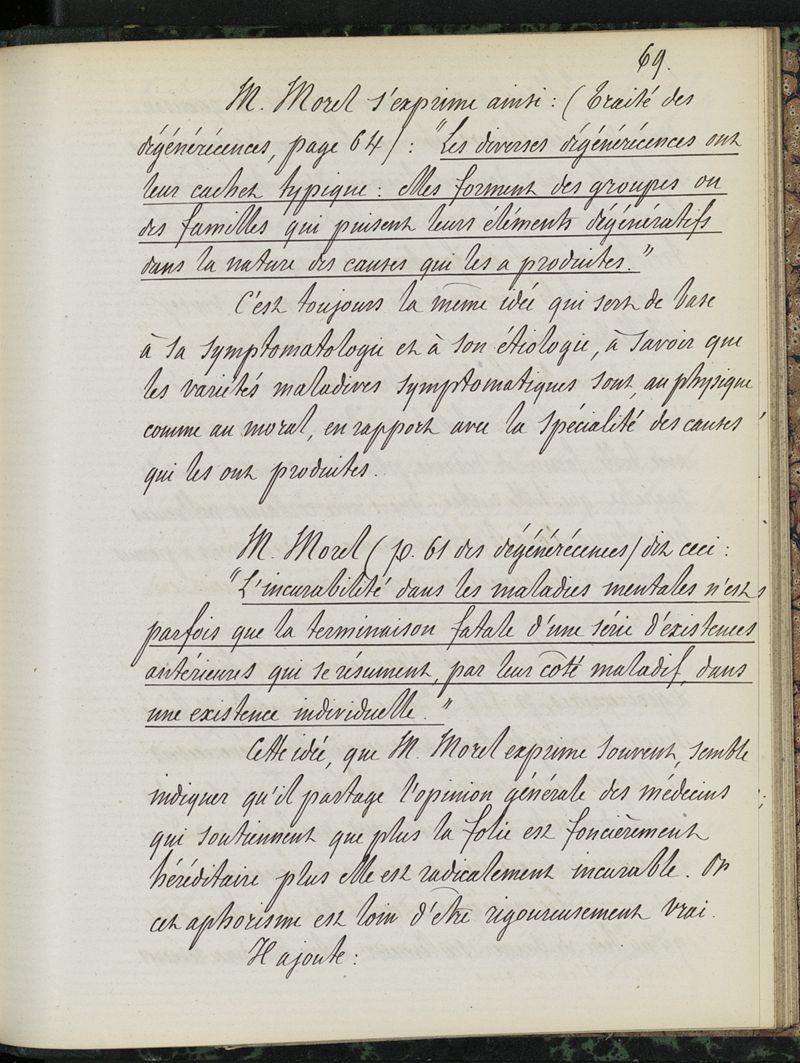 69.
M. Morel s'exprime ainsi : (Traité des
dégénérécences, page 64) : "Les diverses dégénérécences ont
leur cachet typique : elles forment des groupes ou
des familles qui puisent leurs éléments dégénératifs
dans la nature des causes qui les a produites."
C'est toujours la même idée qui sert de base
à sa symptomatologie et à son étiologie, à savoir que
les variétés maladives symptomatiques sont, au physique
comme au moral, en rapport avec la spécialité des causes
qui les ont produites.
M. Morel (p. 61 des dégénérécences) dit ceci :
"L'incurabilité dans les maladies mentales n'est
parfois que la terminaison fatale d'une série d'existences
antérieures qui se résument, par leur côté maladif, dans
une existence individuelle."
Cette idée, que M. Morel exprime souvent, semble
indiquer qu'il partage l'opinion générale des médecins
qui soutiennent que plus la folie est foncièrement
héréditaire plus elle est radicalement incurable. Or
cet aphorisme est loin d'être rigoureusement vrai.
Il ajoute :